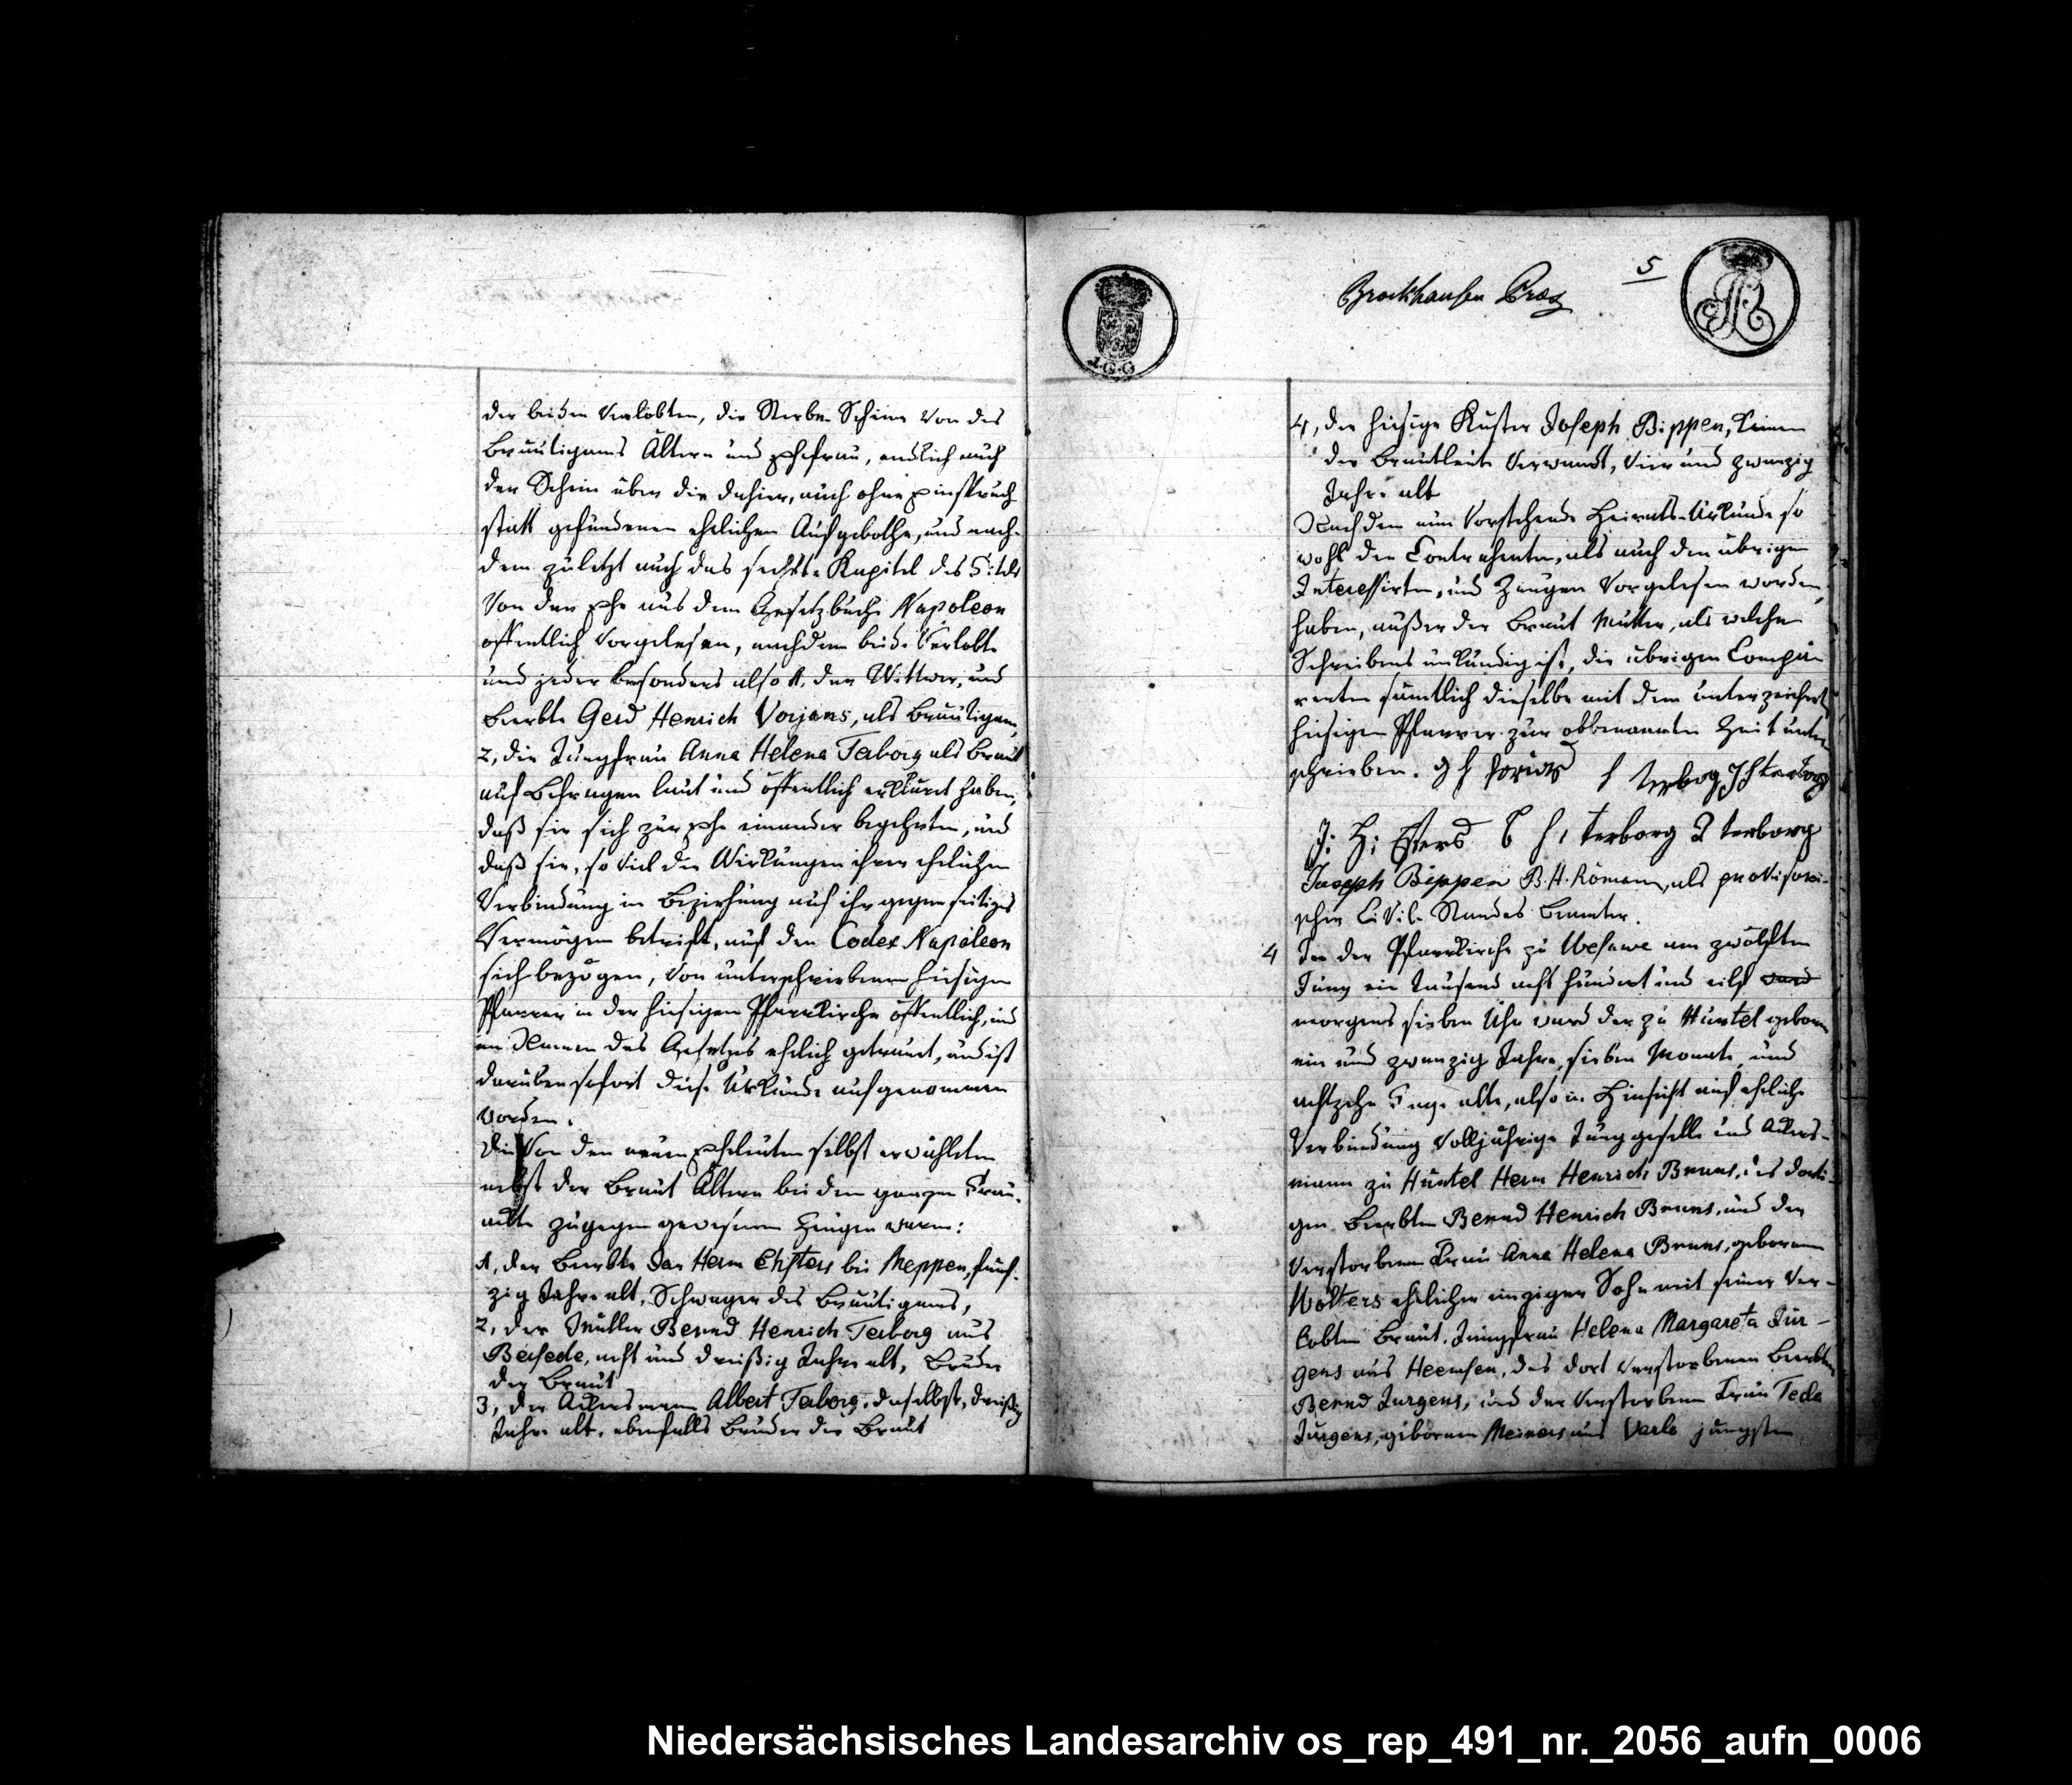 der beiden Verlobten, die Sterbe-Scheine von des
Bräutigams Ältern und Ehefrau, endlich auch
der Schein über die dahier, auch ohne Einspruch
statt gefundenen ehelichen Aufgebothe, und nach-
dem zuletzt auch das sechste Kapitel des Titels
von der Ehe aus dem Gesetzbuche Napoleon
öffentlich vorgelesen, nachdem beide Verlobte
und jeder besonders also 1, der Wittwer, und
Beerbte Gerd Henrich Vorjans, als Bräutigam,
2, die Jungfrau Anna Helena Terborg als Braut
auf Befragen laut und öffentlich erklärt haben,
daß sie sich zur Ehe einander begehrten, und
daß sie, so viel die Wirkungen ihrer ehelichen
Verbindung in Beziehung auf ihr gegenseitiges
Vermögen betrift, auf den Codex Napoleon
sich bezögen, von unterschriebenen hiesigen
Pfarrer in der hiesigen Pfarrkirche öffentlich, und
im Namen des Gesetzes ehelich getraut, und ist
darüber sofort diese Urkunde aufgenommen
worden.
Die von den neuen Eheleuten selbst erwählten
nebst der Braut Ältern bei dem ganzen Trau-
akte zugegen gewesenen Zeugen waren:
1, der Beerbte Jan Herm bei Meppen, fünf-
zig Jahre alt, Schwager des Bräutigams,
2, der Müller Bernd Henrich Terborg aus
Bersede, acht und dreißig Jahre alt, Bruder
der Braut
3, der Ackersmann Albert Terborg, daselbst, dreißig
Jahre alt, ebenfalls Bruder der Braut
Brockhausen Præs
5
A.G.G
4, der hiesige Küster Joseph Bippen, keinem
der Brautleute Verwandt, vier und zwanzig
Jahre alt
Nachdem nun vorstehende Heirats-Urkunde so
wohl den Contrahenten, als auch den übrigen
Interessirten, und Zeugen vorgelesen worden,
haben, außer der Braut Mutter, als welche
Schreibens unkündig ist, die übrigen Compa-
renten sämtlich dieselbe mit dem unterzeichert
hiesigen Pfarrer zur obbenannten Zeit unter
schrieben. g h h terborg
J: H: B H: terborg terborg
Joseph Bippen B. H. Römann, als provisori-
scher Civil-Standes Beamter.
4 In der Pfarrkirche zu Wesuwe am zwölften
Juny ein tausend acht hundert und eilf ward
morgens sieben Uhr ward der zu Hüntel geboren
ein und zwanzig Jahre, sieben Monate, und
achtzehn Tage alte, also in Hinsicht auf eheliche
Verbindung volljährige Junggeselle und Ackers-
mann zu Hüntel Herm Henrich Bruns, des dorti-
gen Beerbten Bernd Henrich Bruns, und der
verstorbenen Frau Anna Helena Bruns, geborenen
Wolters ehelicher einziger Sohn mit seiner Ver-
lobten Braut Jungfrau Helena Margareta Jür-
gens aus Heemsen, des dort verstorbenen Beerbten
Bernd Jurgens, und der verstorbenen Frau Teda
Jurgens, gebornen Meiners aus Varlo jüngsten
Niedersächsisches Landesarchiv os_rep_491_nr._2056_aufn_0006